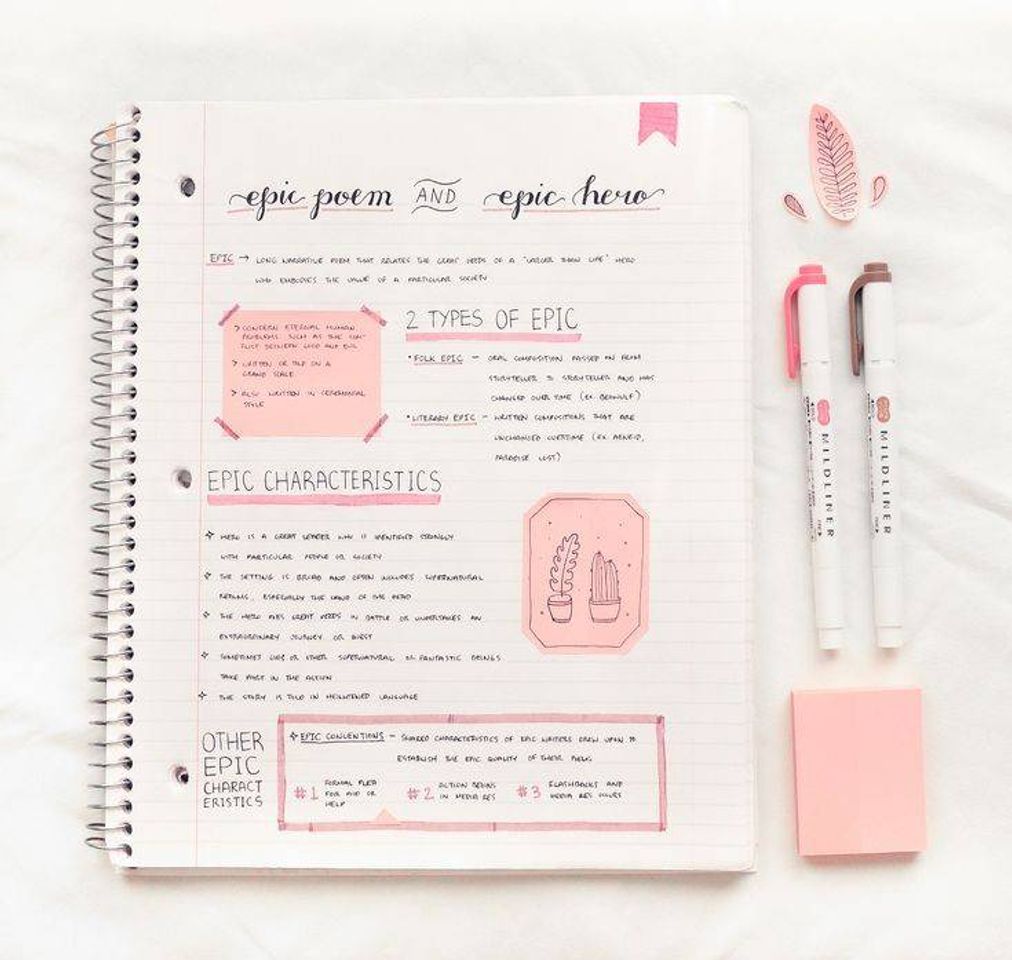 epic poem AND epic hero
EPIC → LONG NARRATIVE POEM THAT RELATES THE GREAT DEEDS OF A "LARGER THAN LIFE" HERO
WHO EMBODIES THE VALUE OF A PARTICULAR SOCIETY
> CONCERN ETERNAL HUMAN
PROBLEMS SUCH AS THE CON-
FLICT BETWEEN GOOD AND EVIL
> WRITTEN OR TOLD ON A
GRAND SCALE
> ALSO WRITTEN IN CEREMONIAL
STYLE
2 TYPES OF EPIC
• FOLK EPIC – ORAL COMPOSITION PASSED ON FROM
STORYTELLER TO STORYTELLER AND HAS
CHANGED OVER TIME (EX. BEOWULF)
• LITERARY EPIC – WRITTEN COMPOSITIONS THAT ARE
UNCHANGED OVERTIME (EX. AENEID,
PARADISE LOST)
EPIC CHARACTERISTICS
HERO IS A GREAT LEADER WHO IS IDENTIFIED STRONGLY
WITH PARTICULAR PEOPLE OR SOCIETY
THE SETTING IS BROAD AND OFTEN INCLUDES SUPERNATURAL
REALMS, ESPECIALLY THE LAND OF THE DEAD
THE HERO DOES GREAT DEEDS IN BATTLE OR UNDERTAKES AN
EXTRAORDINARY JOURNEY OR QUEST
SOMETIMES GODS OR OTHER SUPERNATURAL OR FANTASTIC BEINGS
TAKE PART IN THE ACTION
THE STORY IS TOLD IN HEIGHTENED LANGUAGE
OTHER
EPIC
CHARACT
ERISTICS
EPIC CONVENTIONS – SHARED CHARACTERISTICS OF EPIC WRITERS DRAW UPON TO
ESTABLISH THE EPIC QUALITY OF THEIR
#1 FORMAL PLEA
FOR AID OR
HELP
#2 ACTION BEGINS
IN MEDIA RES
#3 FLASHBACKS AND
MEDIA RES
MILDLINER
MILDLINER